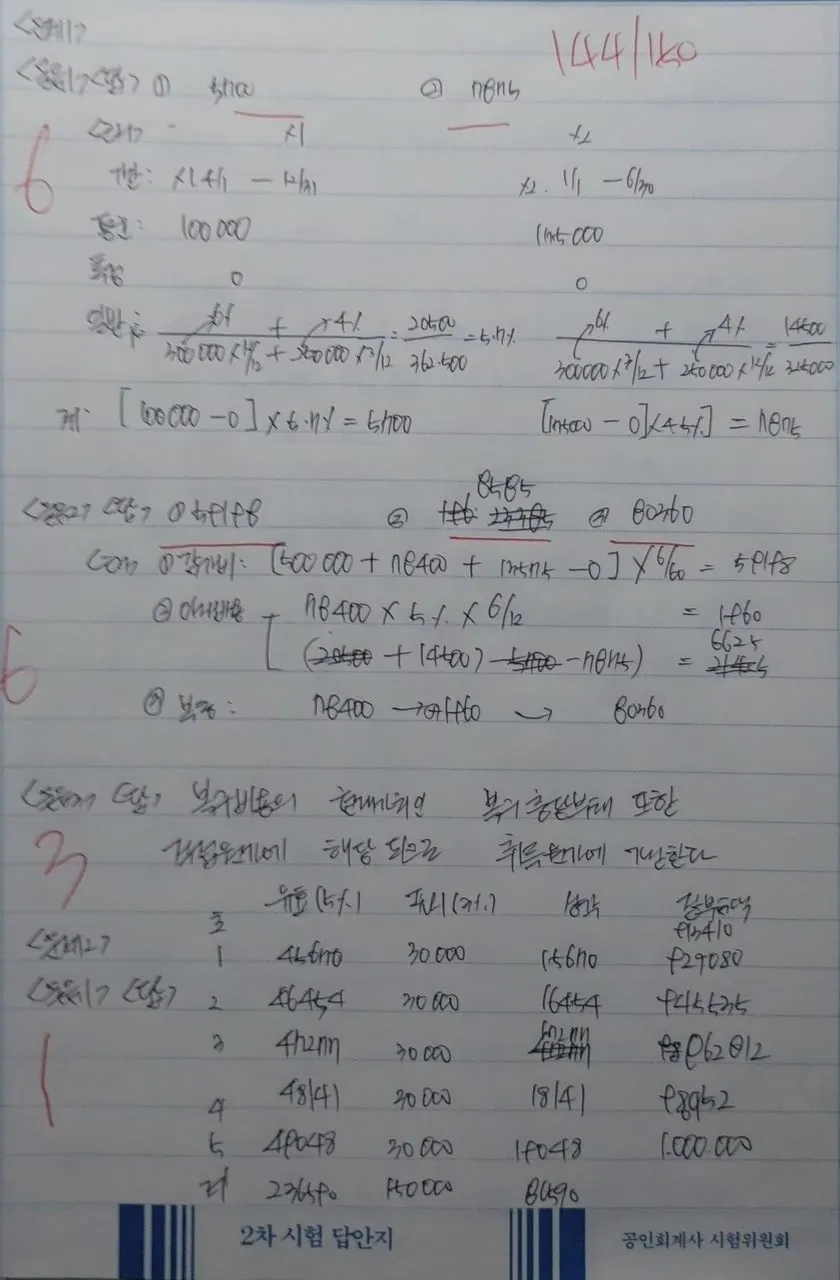 <문제1>
144/150
<물음1> <답> ① 5700 ② 7875
6
<근거> X1 X2
기간: X1 4/1 - 12/31 X2. 1/1 - 6/30
평균: 100000 175000
특정 0 0
일반: 6% + 4% / 300000×12/12 + 250000×3/12 = 20500/362500 = 5.7% 6% + 4% / 300000×3/12 + 250000×12/12 = 14500/325000
계: [100000 - 0] × 5.7% = 5700 [175000 - 0] × 4.5%] = 7875
8585
<물음2> <답> ① 59198 ② ③ 80360
<근거> ① 감가비: [500000 + 78400 + 13575 - 0] × 6/60 = 59198
② 이자비용 78400 × 5% × 6/12 = 1960
6625
+ 14500) - 7875) =
6
③ 복충: 78400 → 1960 → 80360
<물음3> <답> 복구비용의 현재가치인 복구충당부채 또한
3
건설원가에 해당 되므로 취득원가에 가산한다
유효(5%) 표시(3%) 상각 장부금액
초 913410
<문제2> 1 45670 30000 15670 929080
<물음1> <답> 2 46454 30000 16454 945535
3 47277 30000 17277 962812
1
4 48141 30000 18141 980952
5 49048 30000 19048 1.000.000
계 236590 150000 86590
2차 시험 답안지
공인회계사 시험위원회